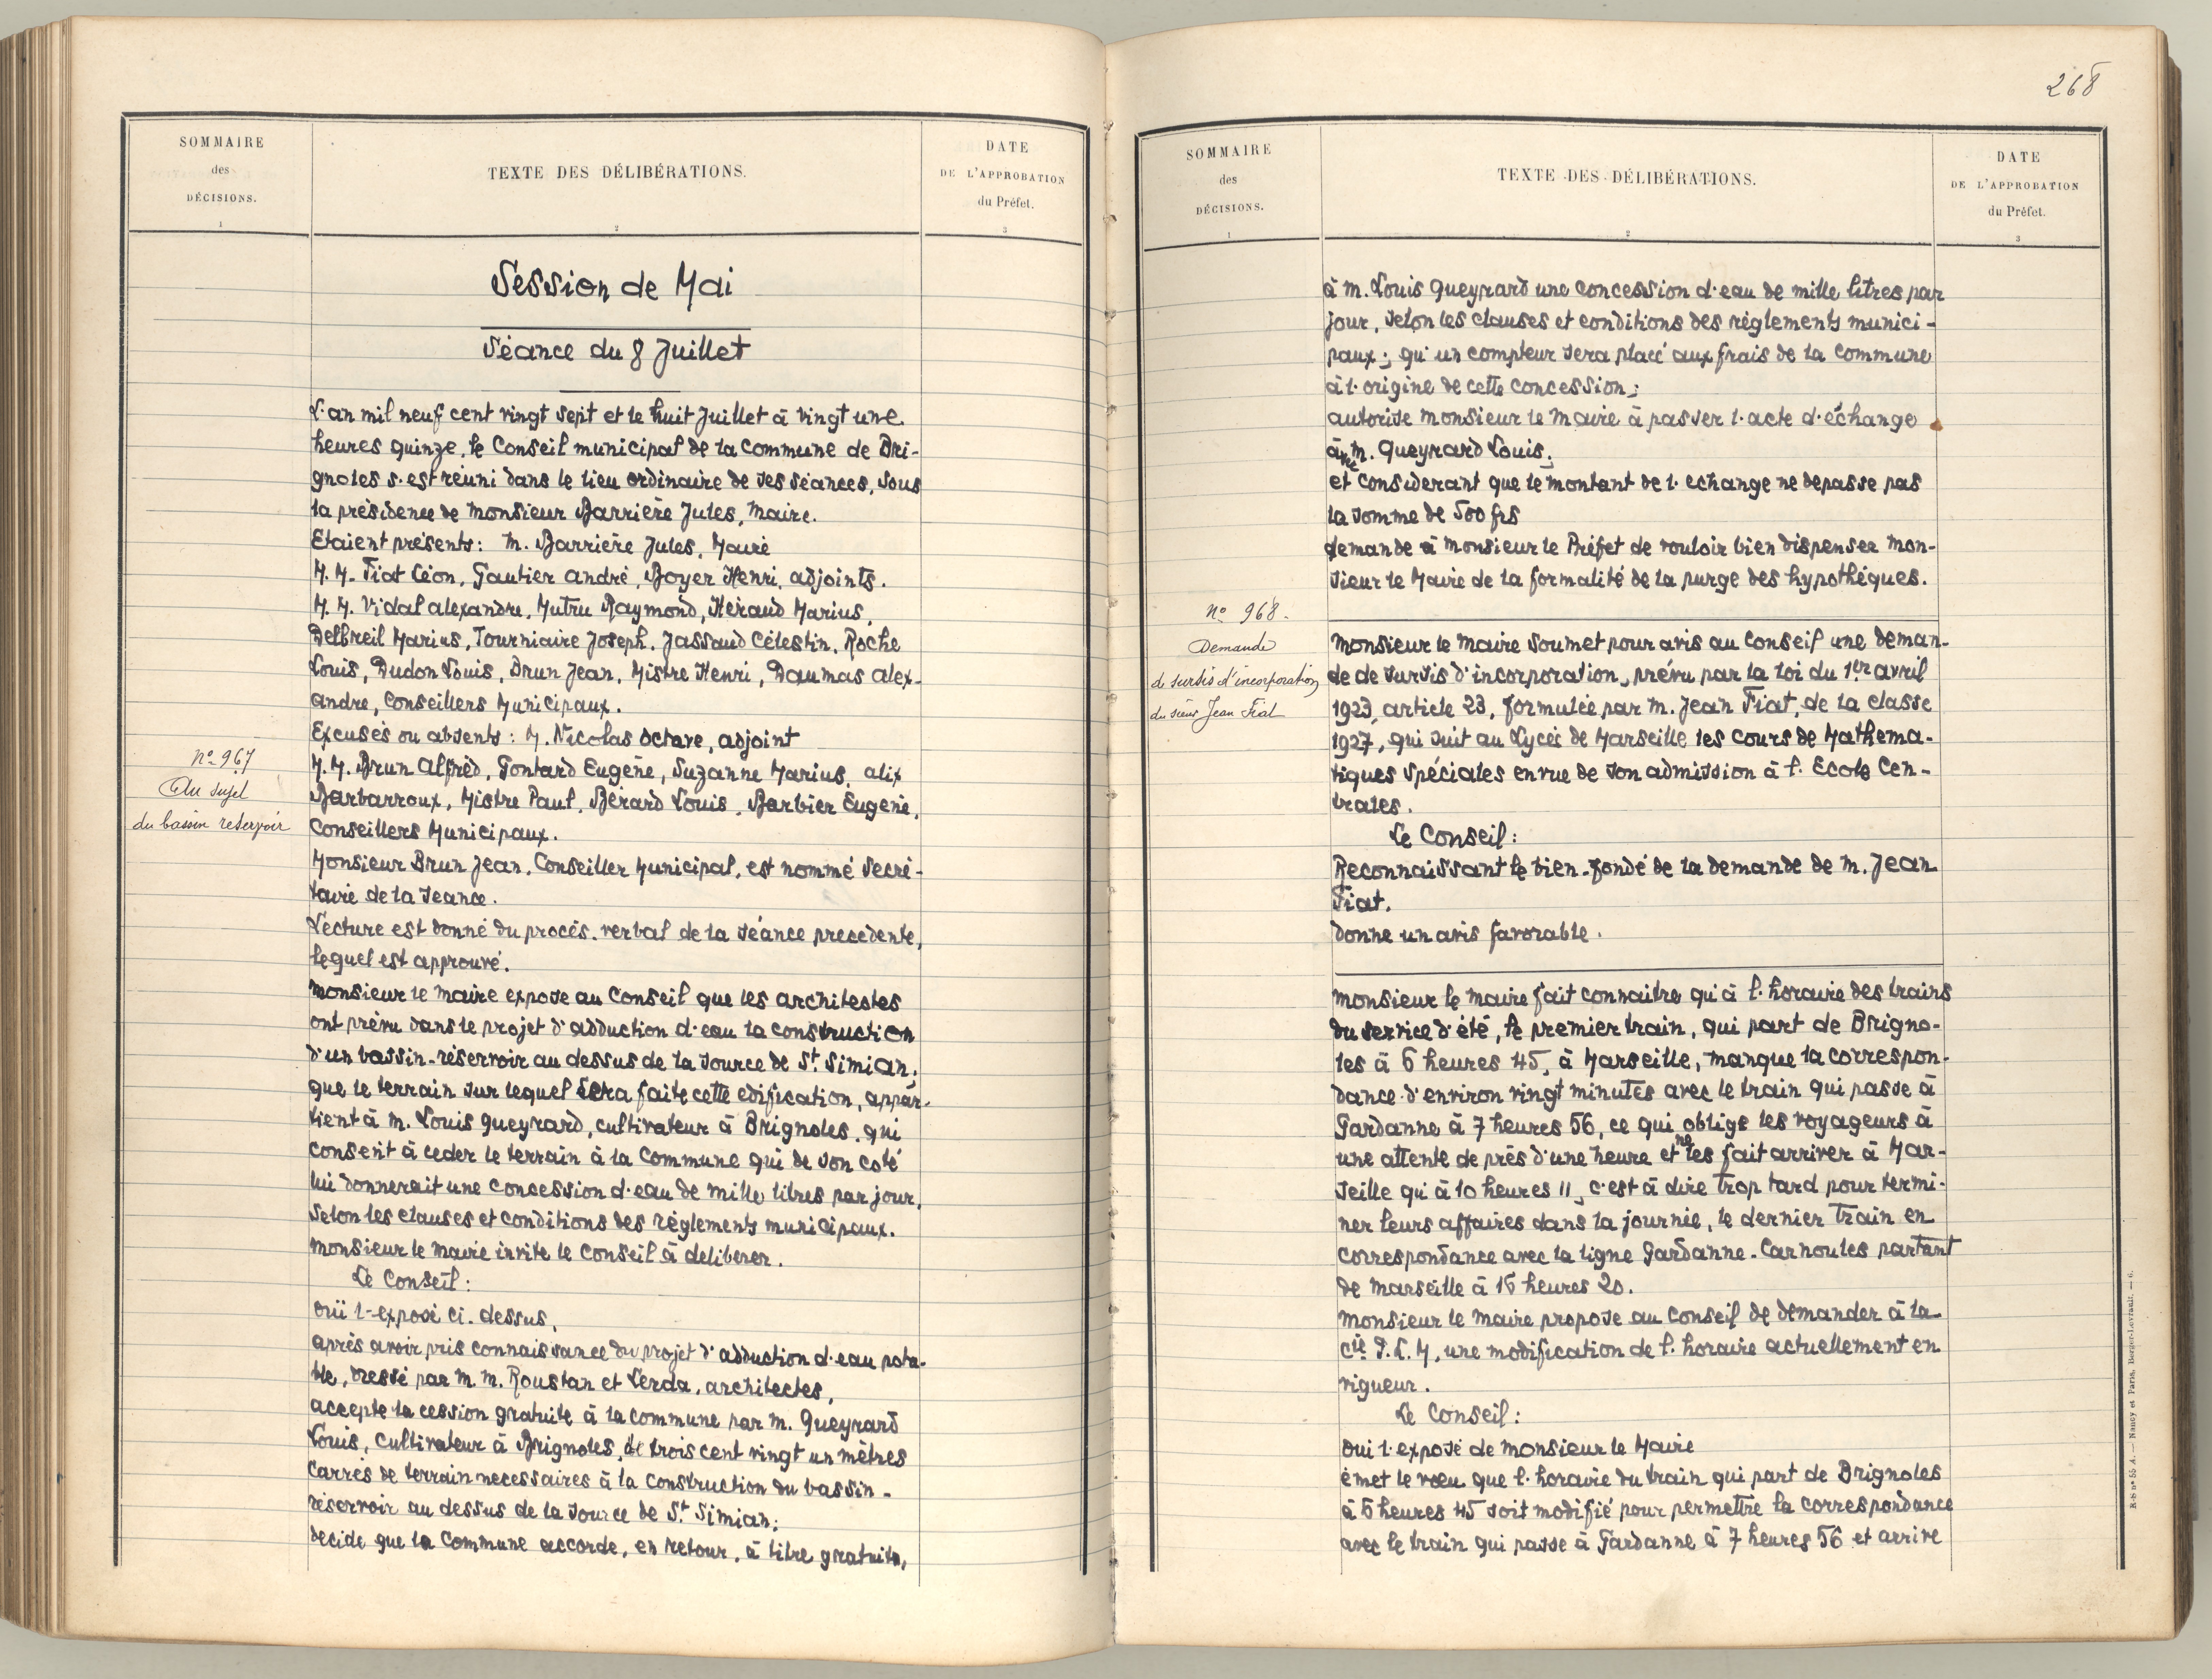 SOMMAIRE
des
DÉCISIONS.
1
TEXTE DES DÉLIBÉRATIONS.
2
DATE
DE L'APPROBATION
du Préfet.
3
Session de Mai
Séance du 8 Juillet
L'an mil neuf cent vingt sept et le huit Juillet à vingt une
heures quinze, le Conseil municipal de la Commune de Bri-
gnoles s'est réuni dans le lieu ordinaire de ses séances, sous
la présidence de Monsieur Barrière Jules, Maire.
Etaient présents: M. Barrière Jules, Maire
M.M. Fiat Léon, Gautier André, Boyer Henri, adjoints.
M.M. Vidal alexandre, Mutru Raymond, Héraud Marius,
Delbreil Marius, Tourniaire Joseph, Jassaud Célestin, Roche
Louis, Dudon Louis, Brun Jean, Mistre Henri, Daumas Alex-
andre, Conseillers Municipaux.
Excusés ou absents: M. Nicolas Octave, adjoint
M.M. Brun Alfred, Gontard Eugène, Suzanne Marius, alix
Barbarroux, Mistre Paul, Bérard Louis, Barbier Eugène,
Conseillers Municipaux.
Monsieur Brun Jean, Conseiller Municipal, est nommé Secré-
taire de la Seance.
Lecture est donné du procès-verbal de la séance precedente,
lequel est approuvé.
N° 967
Au sujet
du bassin reservoir
Monsieur le Maire expose au Conseil que les architestes
ont prévu dans le projet d'adduction d'eau la construction
d'un bassin-réservoir au dessus de la source de St Simian;
que le terrain sur lequel sera faite cette edification, appar-
tient à M. Louis Queyrard, cultivateur à Brignoles, qui
consent à ceder le terrain à la Commune qui de son coté
lui donnerait une concession d'eau de mille litres par jour,
selon les clauses et conditions des règlements municipaux.
Monsieur le Maire invite le Conseil à deliberer.
Le Conseil:
ouï l'exposé ci-dessus,
après avoir pris connaissance du projet d'adduction d'eau pota-
ble, dressé par M.M. Roustan et Lerda, architectes,
accepte la cession gratuite à la commune par M. Queyrard
Louis, cultivateur à Brignoles, de trois cent vingt un mètres
Carrés de terrain necessaires à la construction du bassin-
réservoir au dessus de la source de St Simian;
decide que la Commune accorde, en retour, à titre gratuit,
268
SOMMAIRE
des
DÉCISIONS.
1
TEXTE DES DÉLIBÉRATIONS.
2
DATE
DE L'APPROBATION
du Préfet.
3
à M. Louis Queyrard une concession d'eau de mille litres par
jour, selon les clauses et conditions des règlements munici-
paux; qu'un compteur sera placé aux frais de la commune
à l'origine de cette concession;
autorise Monsieur le Maire à passer l'acte d'échange
avec M. Queyrard Louis;
et considerant que le montant de l'echange ne depasse pas
la somme de 500 frs
demande à Monsieur le Préfet de vouloir bien dispenser Mon-
sieur le Maire de la formalité de la purge des hypothèques.
N° 968.
Demande
de sursis d'incorporation
du sieur Jean Fiat
Monsieur le Maire soumet pour avis au Conseil une deman-
de de sursis d'incorporation, prévu par la loi du 1er avril
1923, article 23, formulée par M. Jean Fiat, de la classe
1927, qui suit au Lycée de Marseille les cours de Mathema-
tiques Spéciales en vue de son admission à l'Ecole Cen-
trales.
Le Conseil:
Reconnaissant le bien-fondé de la demande de M. Jean
Fiat.
donne un avis favorable.
Monsieur le Maire fait connaitre qu'à l'horaire des trains
du service d'été, le premier train, qui part de Brigno-
les à 6 heures 45, à Marseille, manque la correspon-
dance d'environ vingt minutes avec le train qui passe à
Gardanne à 7 heures 56, ce qui oblige les voyageurs à
une attente de près d'une heure et ne les fait arriver à Mar-
seille qu'à 10 heures 11, c'est à dire trop tard pour termi-
ner leurs affaires dans la journée, le dernier train en
correspondance avec la ligne Gardanne-Carnoules partant
de Marseille à 16 heures 20.
Monsieur le Maire propose au Conseil de demander à la
Cie P.L.M, une modification de l'horaire actuellement en
vigueur.
Le Conseil:
ouï l'exposé de Monsieur le Maire
émet le vœu que l'horaire du train qui part de Brignoles
à 6 heures 45 soit modifié pour permettre la correspondance
avec le train qui passe à Gardanne à 7 heures 56 et arrive
R-S n° 55 A. — Nancy et Paris, Berger-Levrault. — 6.